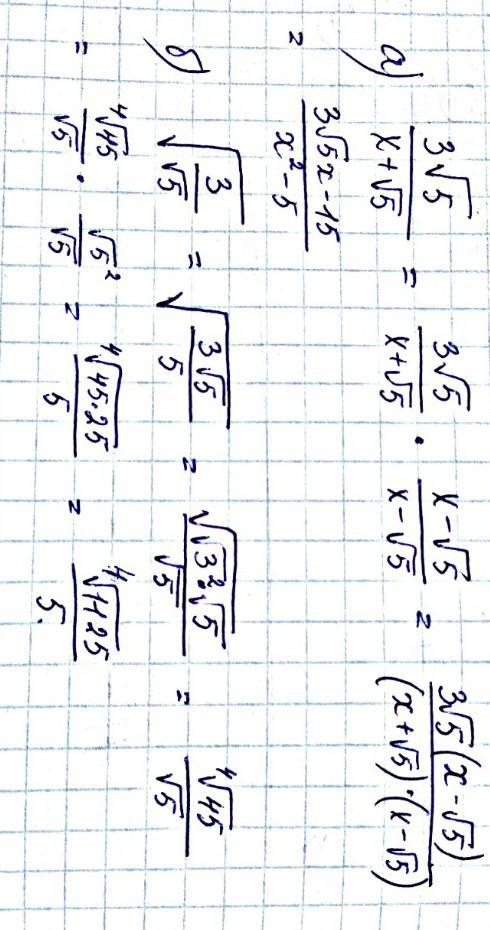 а) 3√5 / x+√5 = 3√5 / x+√5 · x-√5 / x-√5 = 3√5(x-√5) / (x+√5)·(x-√5)
= 3√5x-15 / x²-5
б) √(3 / √5) = √(3√5 / 5) = √(√3²·√5) / √5 = ⁴√45 / √5
= ⁴√45 / √5 · √5² / √5 = ⁴√(45·25) / 5 = ⁴√1125 / 5.